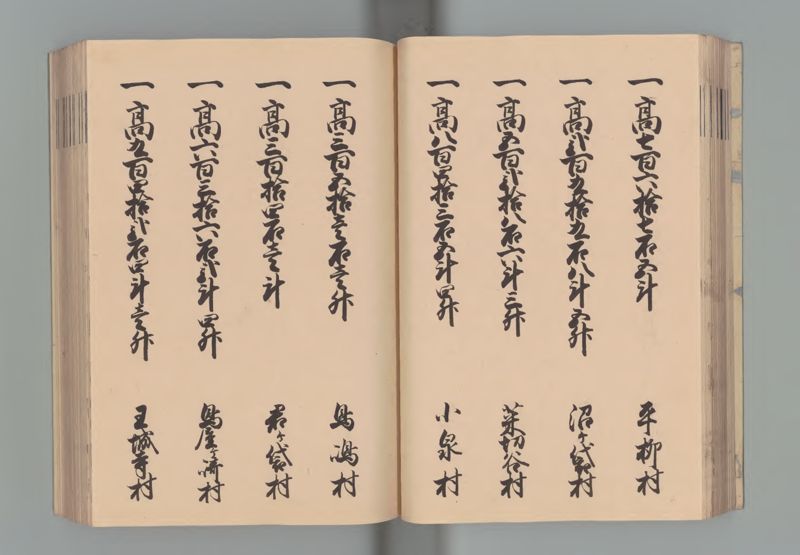 一高七百六拾七石五斗 平柳村
一高弐百五拾五石八斗五升 沼ケ袋村
一高五百弐拾八石六斗三升 菜切谷村
一高八百四拾三石五斗四升 小泉村
一高三百五拾壱石壱升 鳥嶋村
一高三百拾四石壱斗 君ケ袋村
一高六百三拾六石弐斗四升 鳥屋ケ崎村
一高九百四拾弐石四斗壱升 王城寺村